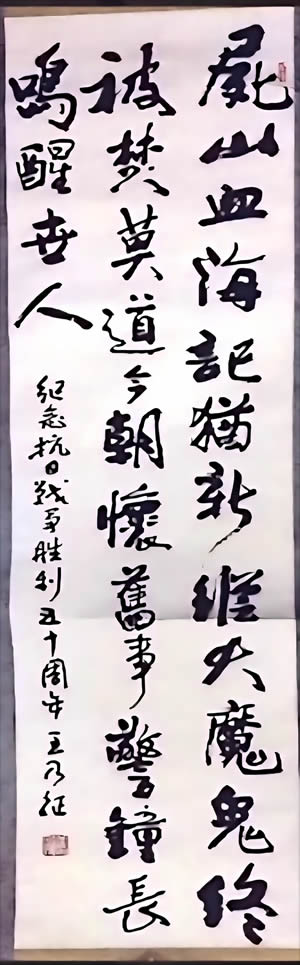 屍山血海記猶新縱火魔鬼終
被焚莫道今朝懷舊事警鐘長
鳴醒世人
紀念抗日戰爭勝利五十周年王乃征